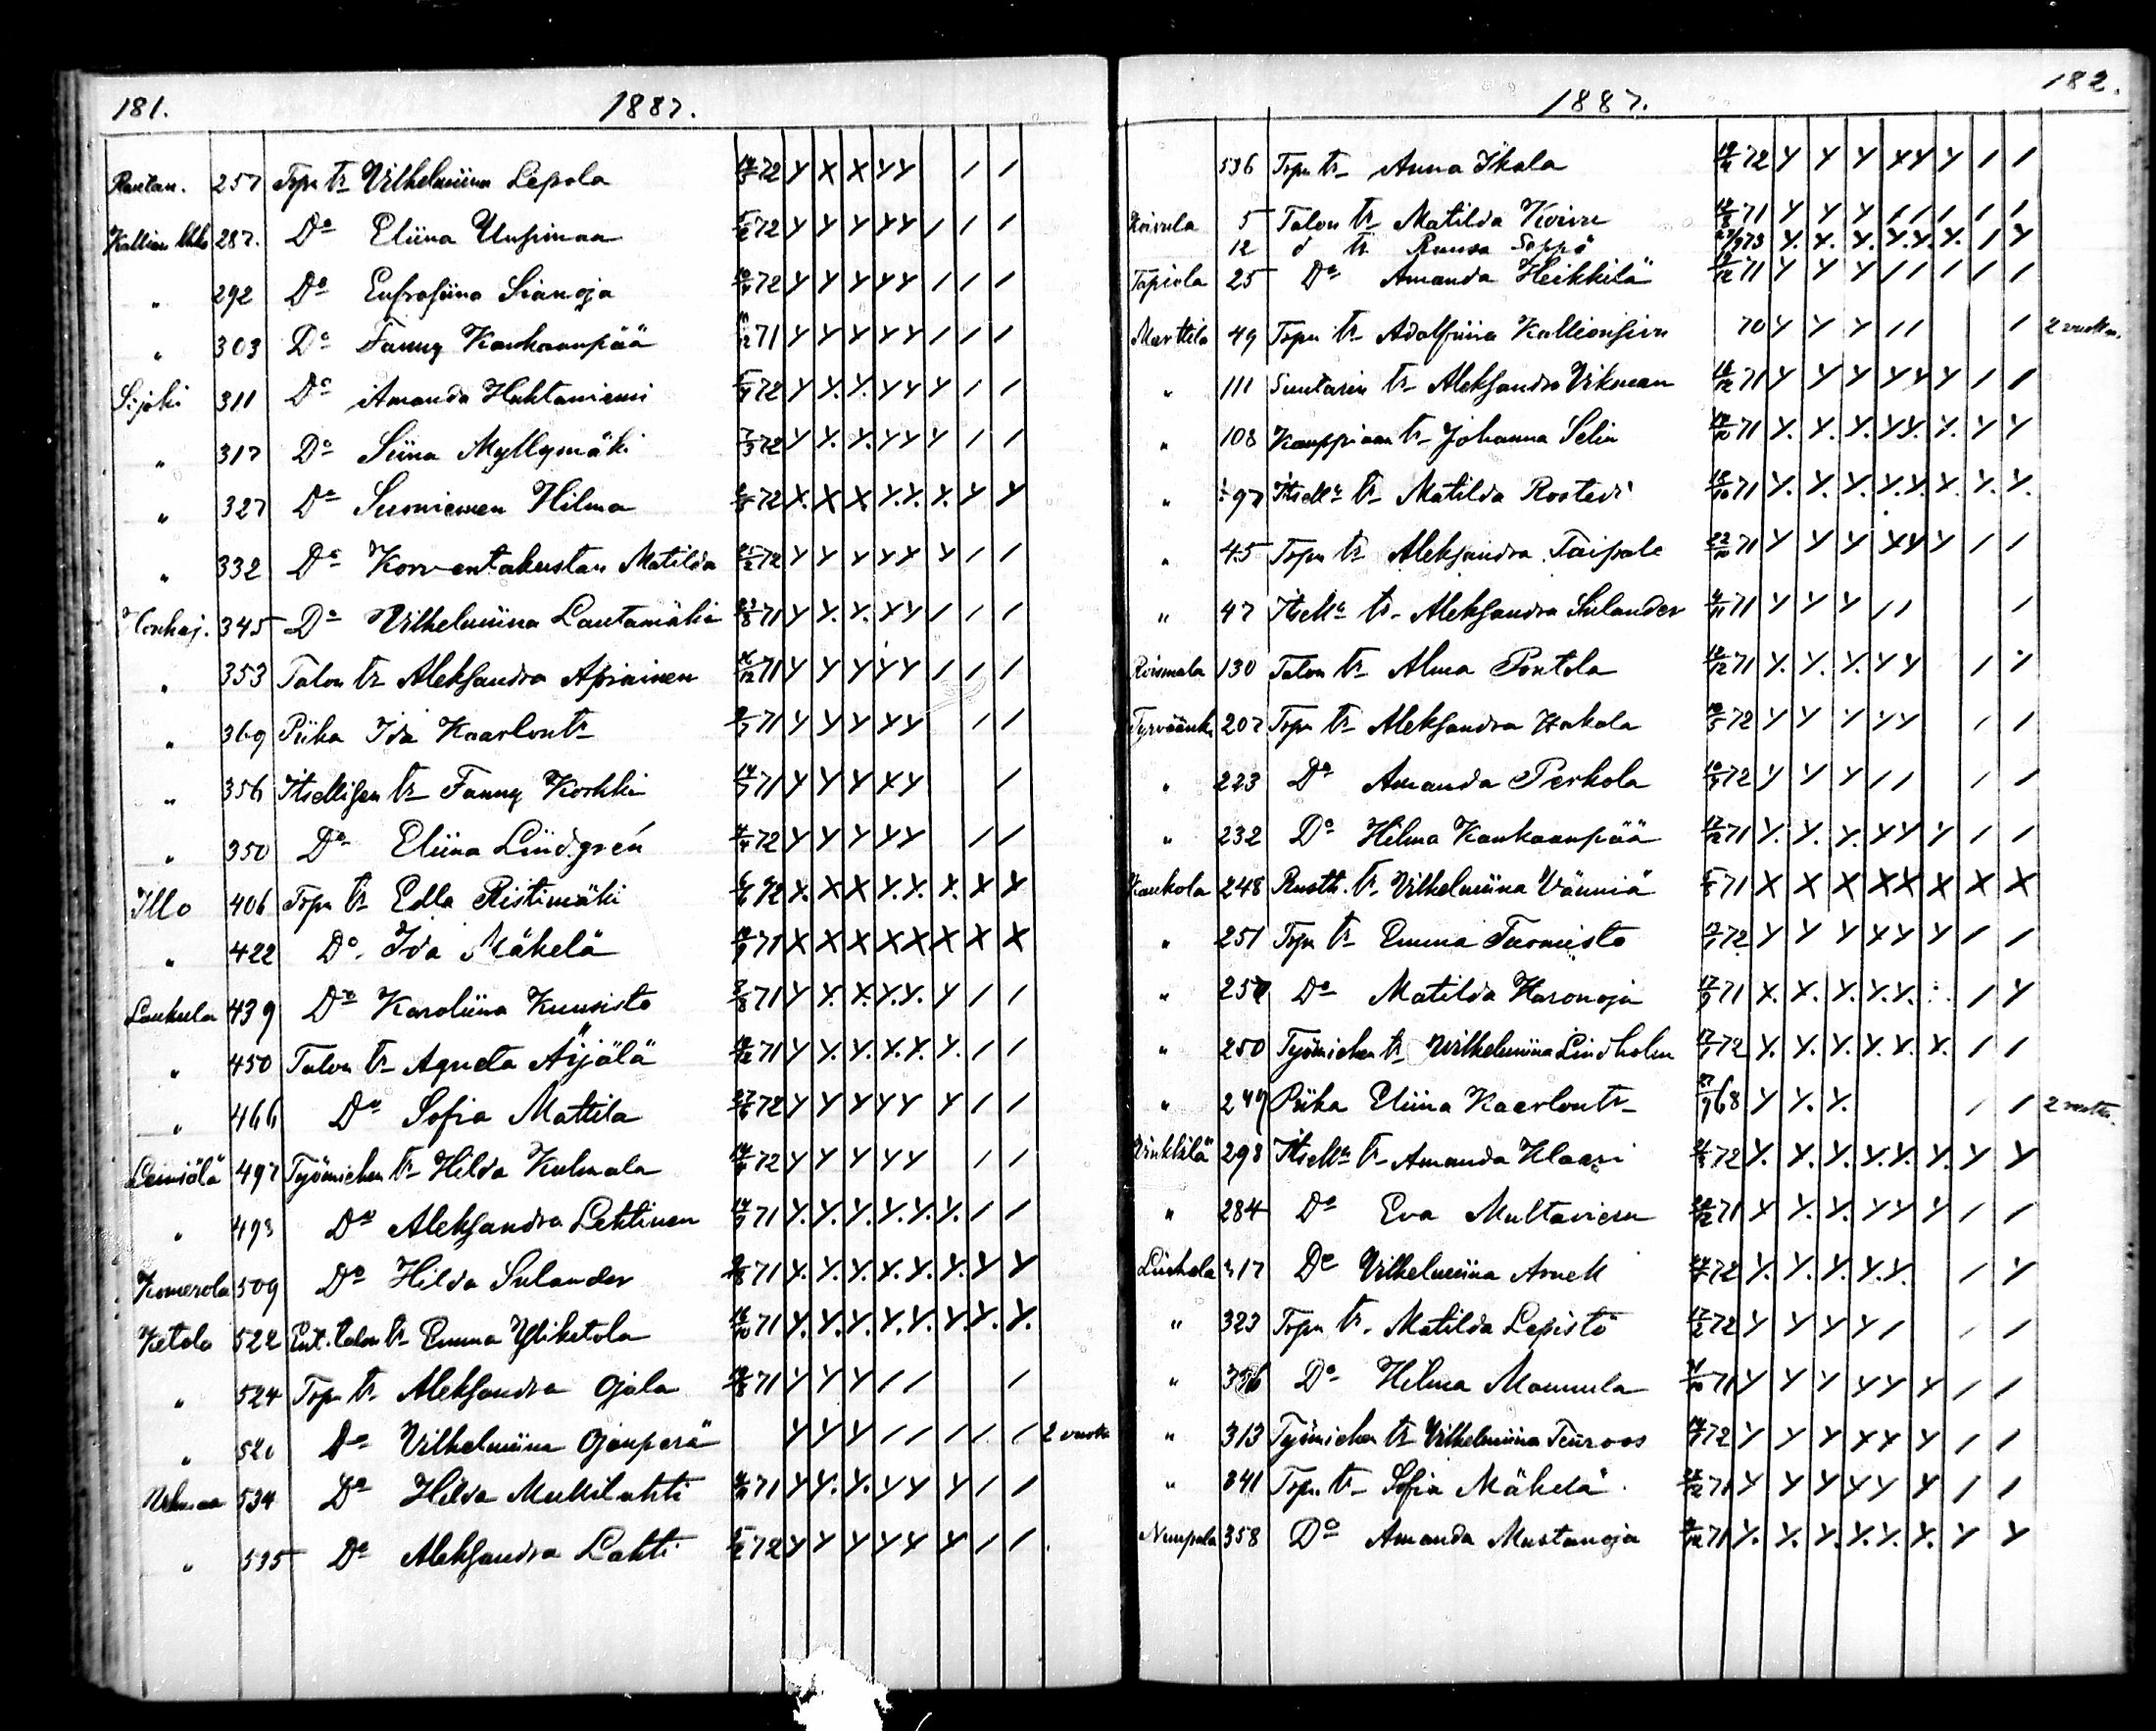 181.
1887.
Rautan. 257 Torp. tr Vilhelmiina Lepola 72 Y X X Y Y / /
Kallian 287. Do Eliina Uusimaa 5/2 72 Y Y Y Y Y / / /
" 292 Do Eufrosiina Sianoja 72 Y Y Y Y Y / / /
" 303 Do Fanny Kankaanpää 71 Y Y Y Y Y / / /
311 Do Amanda Huhtaniemi 72 Y Y. Y. Y Y Y / /
" 317 Do Siina Myllymäki 7/3 72 Y Y. Y. Y Y Y / /
" 327 Do Suoniemen Hilma 72 X. X X Y. Y. X. Y Y
" 332 Do Korventakustan Matilda 72 Y Y Y Y Y Y / /
Honkaj. 345 Do Vilhelmiina Lautamäki 71 Y Y. Y. X Y / / /
" 353 Talon tr Aleksandra Apiainen 71 Y Y Y Y Y / / /
" 369 Piika Ida Kaarlontr 71 Y Y Y Y Y / /
" 356 Itsellisen tr Fanny Korkki 71 Y Y Y X Y /
" 350 Do Eliina Lindgrén 72 Y Y Y Y Y / /
Illo 406 Torp tr Edla Ristimäki 72 X. X X X. X. X. X X
" 422 Do. Ida Mäkelä 71 X X X X X X X X
Laukula 439 Do Karoliina Kuusisto 71 Y Y. X. Y. Y. Y / /
" 450 Talon tr Agneta Äijälä 71 Y Y. Y. X. X. Y. / /
" 466 Do Sofia Mattila 72 Y Y Y Y Y Y / /
Leiniälä 497 Työmiehen tr Hilda Kulmala 72 Y Y Y Y Y / /
" 493 Do Aleksandra Lehtinen 71 Y. Y. Y. Y. Y. Y. / /
Komerola 509 Do Hilda Sulander 71 Y. Y. Y. X. Y. Y. Y Y
Ketola 522 Ent. talon tr Emma Yliketola 16/10 71 Y. Y. Y. Y. Y. Y. Y. Y.
" 524 Torp tr Aleksandra Ojala 71 Y Y Y / / /
" 520 Do Vilhelmiina Ojanperä Y Y Y / / / / / 2 vuotta
534 Do Hilda Mullilahti 71 Y Y. Y. Y Y Y / /
" 535 Do Aleksandra Lahti 72 Y Y Y Y Y Y / /
182.
1887.
536 Torp tr Anna Ikala 72 Y Y Y X Y Y / /
Koivula 5 Talon tr Matilda Koivu 71 Y Y Y / / / / /
12 d tr Ruusa Seppä 73 Y. Y. Y. Y. Y. Y. / Y
Tapiola 25 Do Amanda Heikkilä 71 Y Y Y / / / / /
Marttila 49 Torp tr Adolfiina Kallionsivu 70 Y Y Y / / / 2 vuotta.
" 111 Suutarin tr Aleksandra Vikman 71 Y Y Y Y Y Y / /
" 108 Kauppiaan tr Johanna Selin 71 Y. Y. Y. Y Y. Y. Y Y
" 97 Itsells tr Matilda Rostedi 71 Y. Y. Y. Y. Y. X. Y. Y.
" 45 Torp tr Aleksandra Taipale 71 Y Y Y X Y Y / /
" 47 Itsells tr Aleksandra Sulander 71 Y Y Y / / /
Roismala 130 Talon tr Alma Pontola 71 Y. Y. Y. Y Y / Y
207 Torp tr Aleksandra Hakala 72 Y Y Y Y Y / /
" 223 Do Amanda Perkola 72 Y Y Y / / / /
" 232 Do Hilma Kankaanpää 71 Y. Y. Y. Y Y Y / /
Kaukola 248 Rusth. tr Vilhelmiina Vänniä 71 X X X X X X X X
" 251 Torp tr Emma Tuomisto 72 Y Y Y X Y Y / /
" Do Matilda Haronoja 71 X. X. Y. Y. Y. / Y
" 250 Työmiehen tr Vilhelmiina Lindholm 72 Y. Y. Y. Y. Y. X. / /
" 249 Piika Eliina Kaarlontr 68 Y Y. Y. / / 2 vuotta.
Vinkkilä 298 Itsells tr Amanda Klaari 72 Y. Y. Y. Y. Y. Y. Y Y
" 284 Do Eva Multavieru 71 Y Y. Y. Y Y Y / /
Liuhala 317 Do Vilhelmiina Arnell 72 Y. Y. Y. Y. Y. / Y
" 323 Torp tr. Matilda Lepistö 72 Y Y Y Y / / /
" Do Hilma Mannula 71 Y Y Y Y Y Y / /
" 313 Työmiehen tr Vilhelmiina Teiroos 72 Y Y Y X Y Y / /
" 341 Torp. tr Sofia Mäkelä 71 Y Y Y Y Y Y / /
Nuupala 358 Do Amanda Mustanoja 71 Y. Y. Y. Y. Y. Y. Y Y